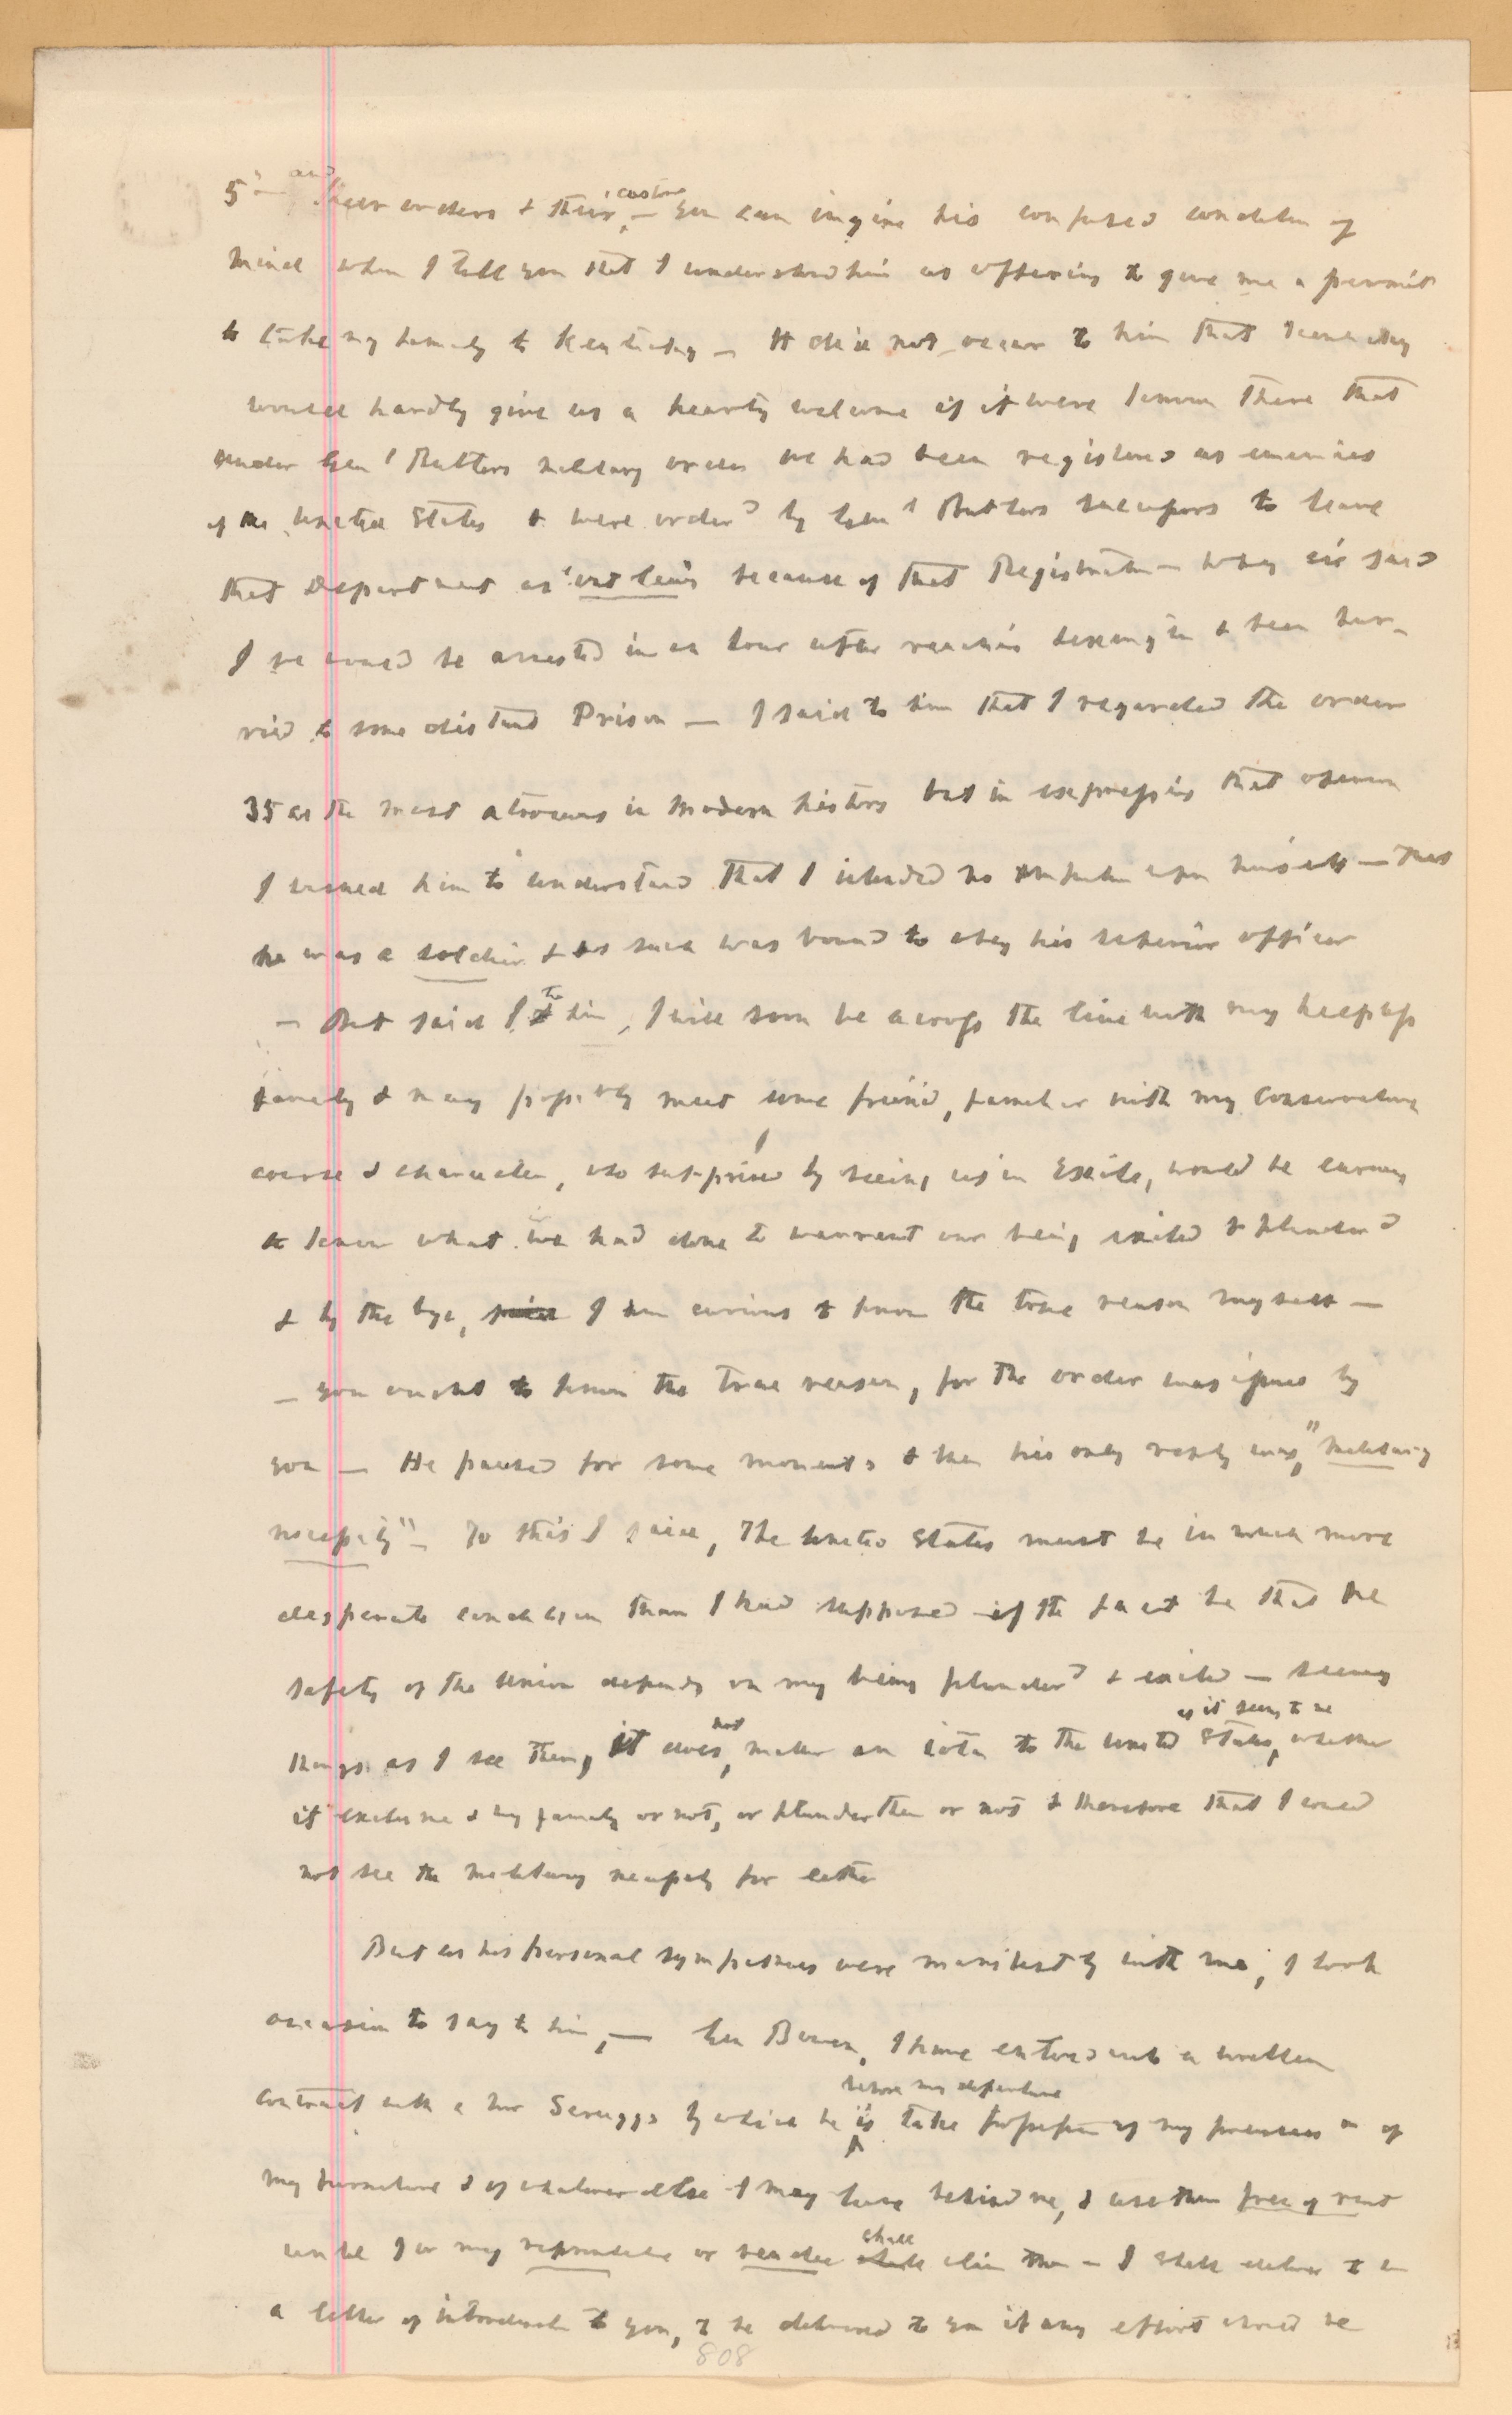 5 — and their orders & their custom — you can imgine his confused condition of
mind when I tell you that I understood him as offering to give me a permit
to take my family to Kentucky — It did not occur to him that Kentucky
would hardly give us a hearty welcome if it were known there that
under Gen'l Butlers military order we had been registered as enemies
of the United States & were order'd by Gen'l Butlers successors to leave
that Department as "outlaws because of that Registration — Why sir said
I we would be arrested in an hour after reaching Lexington & been hur-
ried to some distant Prison — I said to him that I regarded the order
35 as the most atrocious in modern history but in expressing that opinion
I wished him to understand that I intended no imputation upon himself — that
he was a soldier & as such was bound to obey his superior officer
— But said I to him, I will soon be across the line with my helpless
family & may possibly meet some friend, familiar with my conservative
course & character, who surprised by seeing us in Exile, would be curious
to know what we had done to warrant our being exiled & plundered
& by the bye, said I am curious to know the true reason myself —
— you ought to know the true reason, for the order was issued by
you — He paused for some moments & then his only reply was, "Military
necessity" — To this I said, The United States must be in much more
desperate condition than I had supposed if the fact be that the
safety of the Union depends on my being plunder'd & exiled — seeing
things as I see them, it does not matter an iota to the United States, as it seems to me whether
it exiles me & my family or not, or plunder them or not & therefore that I could
not see the military necessity for either
But as his personal sympathies were manifestly with me, I took
occasion to say to him, — Gen Bowen, I have entered into a written
contract with a Mr Scruggs by which he is before my departure take possession of my premises & of
my furniture & of whatever else I may leave behind me, & use them free of rent
until I or my representative or vendee shall claim them — I shall deliver to him
a letter of introduction to you, to be delivered to you if any effort should be
808